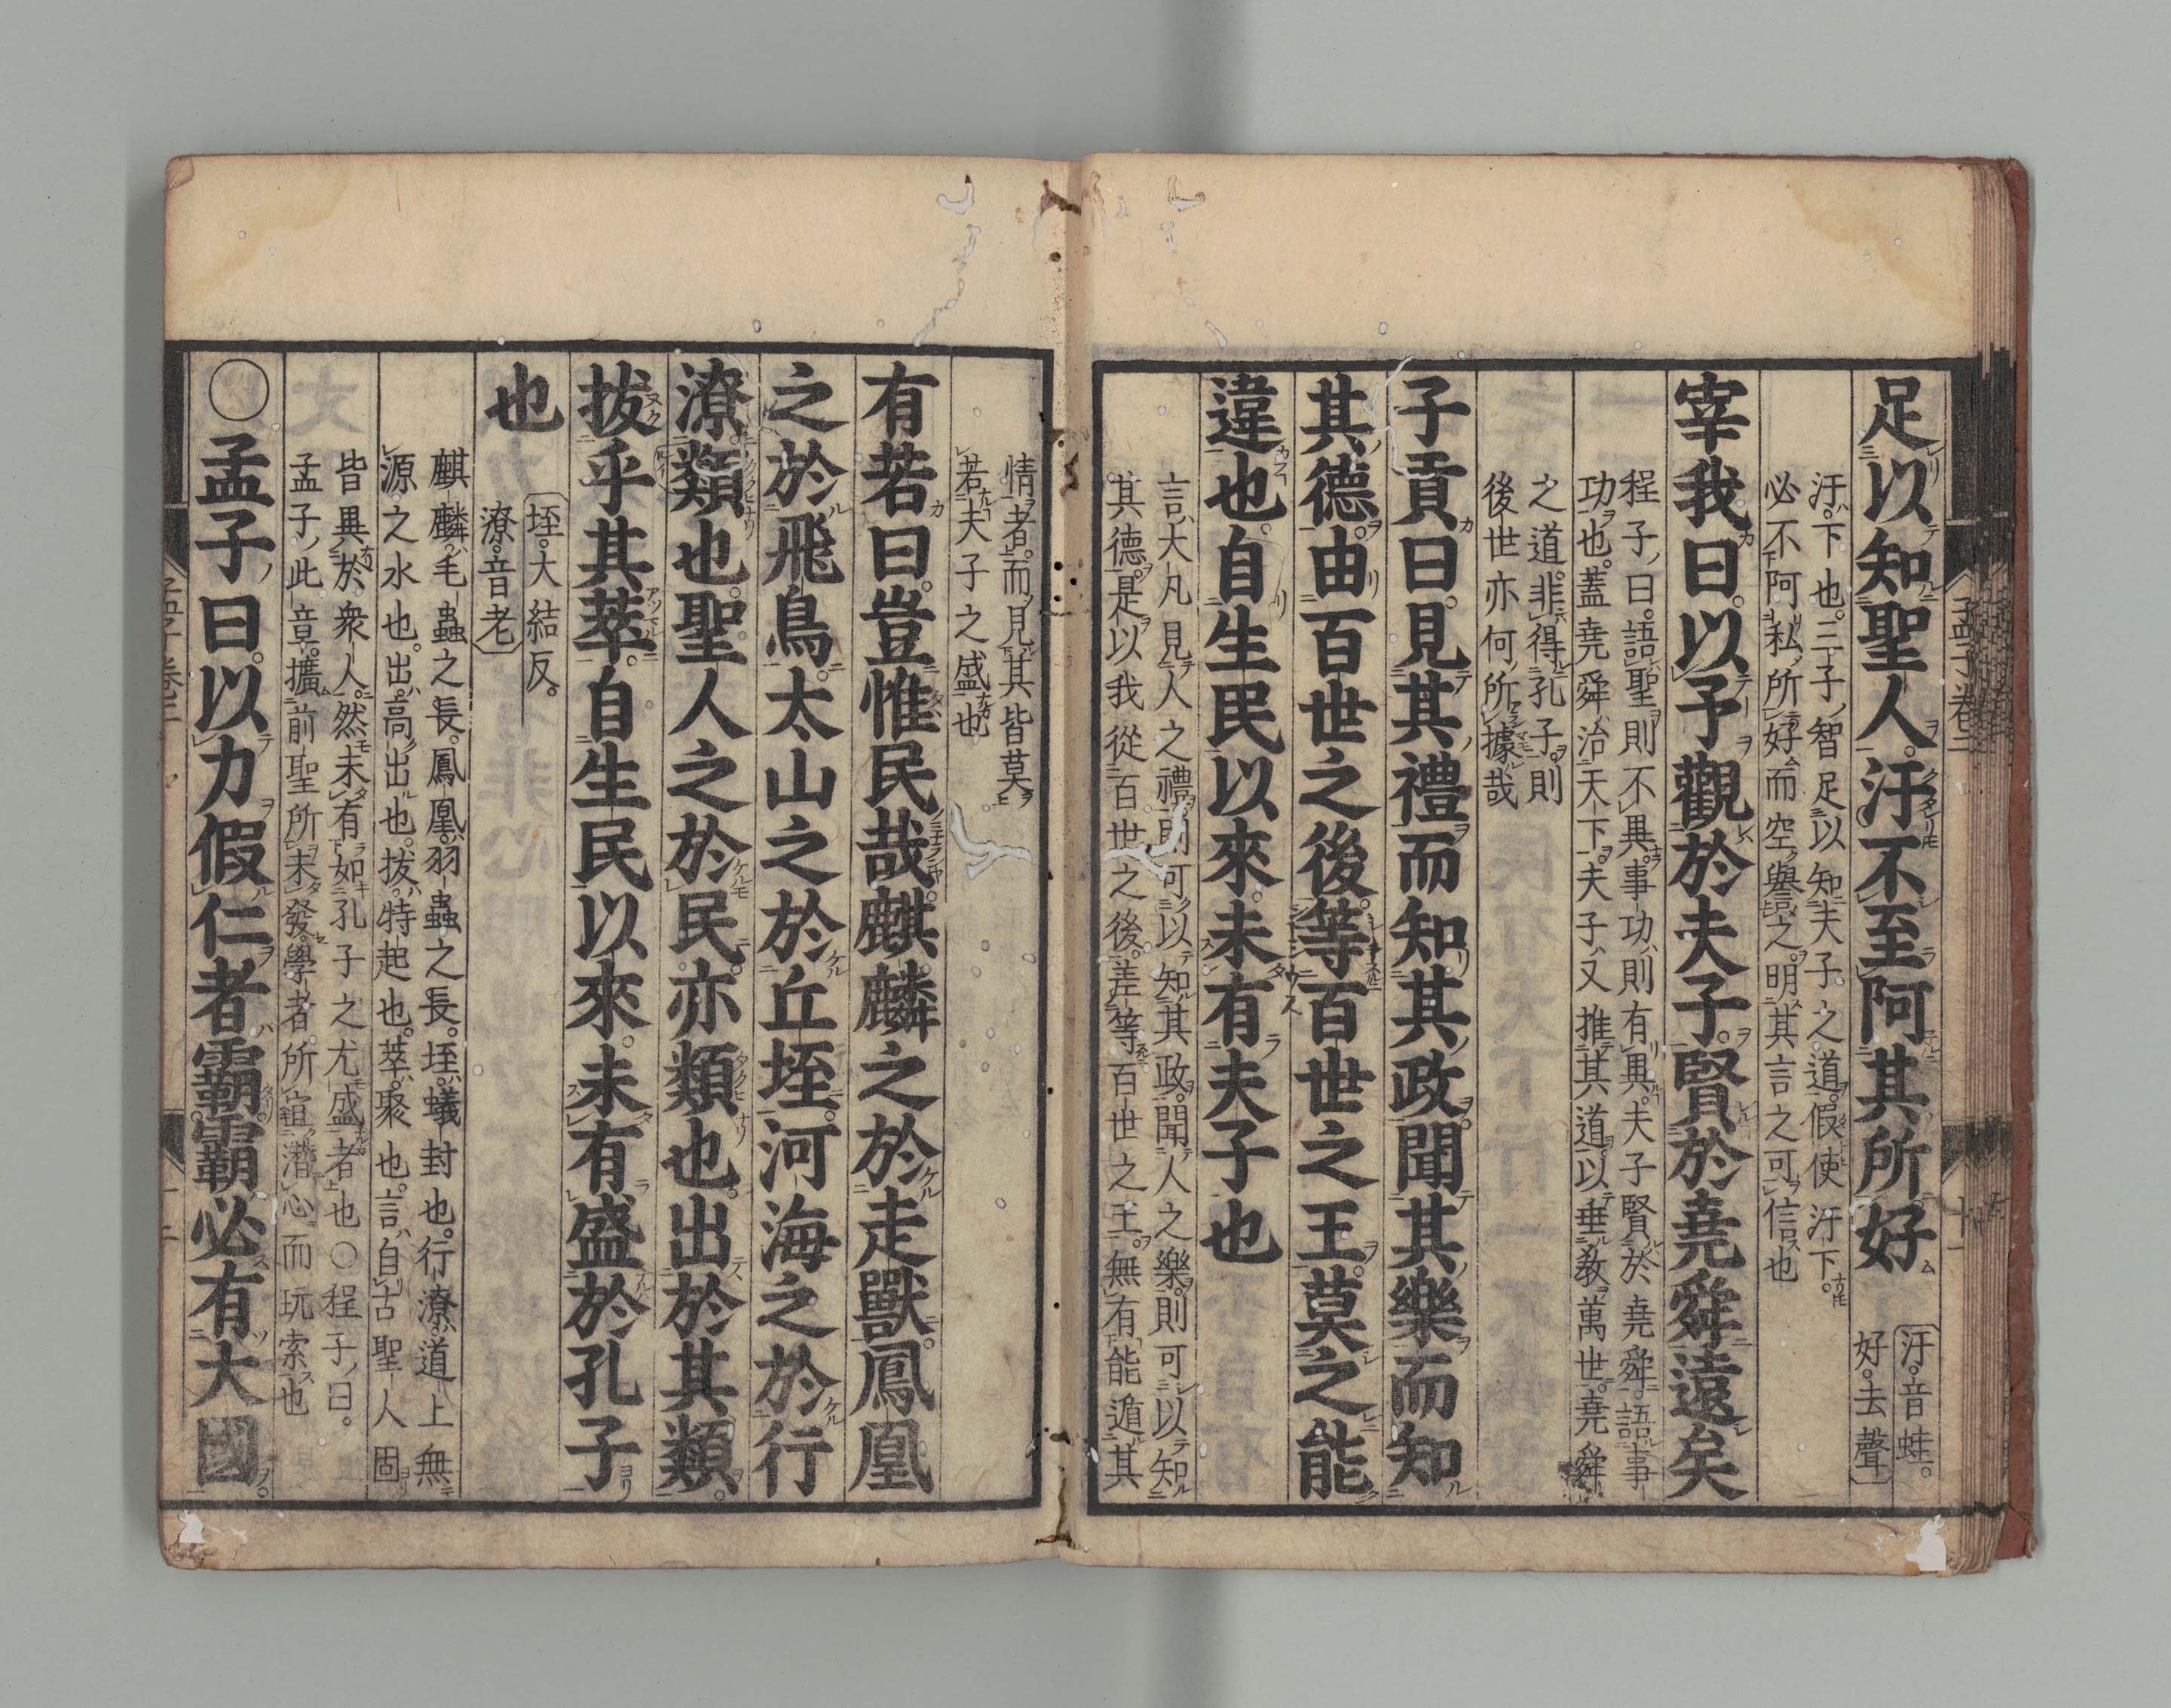 足以知聖人汙不至阿其所好
汙音蛙
好去聲
汙下也三子智足以知夫子之道假使汙下
必不阿私所好而空譽之明其言之可信也
宰我曰以予觀於夫子賢於堯舜遠矣
程子曰語聖則不異事功則有異夫子賢於堯舜語事
功也蓋堯舜治天下夫子又推其道以垂教萬世堯舜
之道非得孔子則
後世亦何所據哉
子貢曰見其禮而知其政聞其樂而知
其德由百世之後等百世之王莫之能
違也自生民以來未有夫子也
言大凡見人之禮則可以知其政聞人之樂則可以知
其德是以我從百世之後差等百世之王無有能遁其
情者而見其皆莫
若夫子之盛也
有若曰豈惟民哉麒麟之於走獸鳳凰
之於飛鳥太山之於丘垤河海之於行
潦類也聖人之於民亦類也出於其類
拔乎其萃自生民以來未有盛於孔子
也
垤大結反
潦音老
麒麟毛蟲之長鳳凰羽蟲之長垤蟻封也行潦道上無
源之水也出高出也拔特起也萃聚也言自古聖人固
皆異於衆人然未有如孔子之尤盛者也○程子曰
孟子此章擴前聖所未發學者所宜潛心而玩索也
○孟子曰以力假仁者霸霸必有大國
孟子卷二